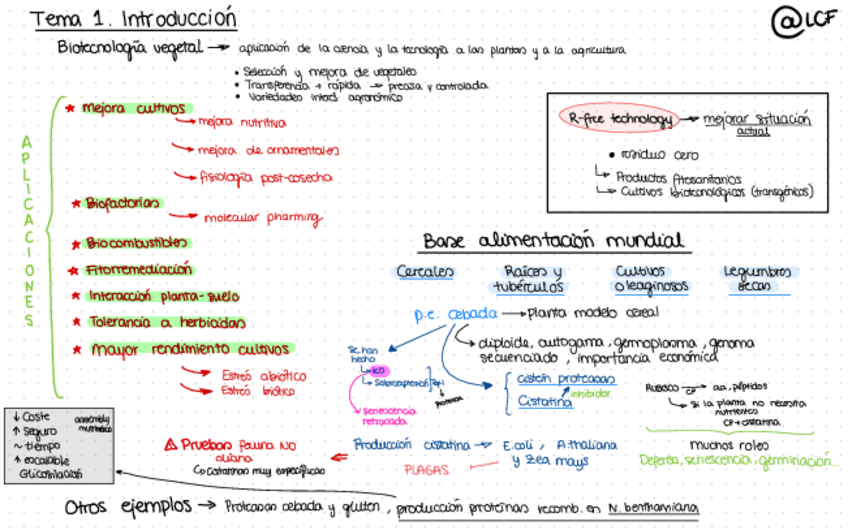 Tema 1. Introducción
@LCF
Biotecnología vegetal → aplicación de la ciencia y la tecnología a las plantas y a la agricultura
• Selección y mejora de vegetales
• Transferencia + rápida → precisa y controlada
• Variedades interés agronómico
APLICACIONES
★ Mejora cultivos
→ mejora nutritiva
→ mejora de ornamentales
→ fisiología post-cosecha
★ Biofactorías
→ molecular pharming
★ Biocombustibles
★ Fitorremediación
★ Interacción planta-suelo
★ Tolerancia a herbicidas
★ Mayor rendimiento cultivos
→ Estrés abiótico
→ Estrés biótico
R-free technology → mejorar situación actual
• residuo cero
↳ Productos fitosanitarios
↳ Cultivos biotecnológicos (transgénicos)
Base alimentación mundial
Cereales
Raíces y tubérculos
Cultivos oleaginosos
Legumbres secas
p.e. cebada → planta modelo cereal
diploide, autogama, germoplasma, genoma
secuenciado, importancia económica
se han hecho
↳ KO
↳ Sobreexpresión
Senescencia retrasada
cistein proteasas
inhibidor
Cistatina
RUBISCO → CP aa, péptidos
↳ Si la planta no necesita
nutrientes
CP + cistatina
muchos roles
Defensa, senescencia, germinación...
Producción cistatina → E.coli, A.thaliana
y Zea mays
PLAGAS
⚠ Pruebas fauna NO
diana
↳ Cistatinas muy específicas
↓ Coste
↑ Seguro
~ tiempo
↑ escalable
Glicosilación
assembly
Otros ejemplos → Proteasas cebada y gluten, producción proteínas recomb. en N. benthamiana